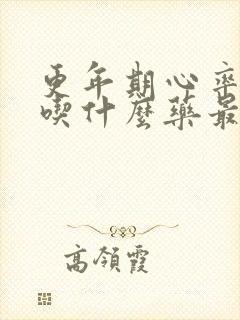 更年期心率
喫什麼藥最
高領霞